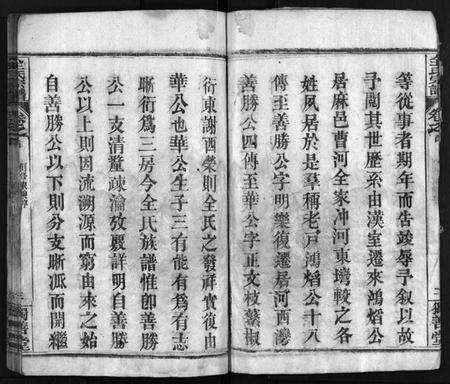 等從事者期年而告竣辱予叙以故
予閱其世歷系由漢室遷來鴻熖公
居麻邑曹河全家冲河東塆較之各
姓夙居於是羣稱老戶鴻熖公十八
傳至善勝公字明樂復遷居河西灣
善勝公四傳至華公字正文枝蕃椒
衍東謝西榮則全氏之發祥實復由
華公也華公生子三有能有爲有志
㫼衍爲三房今全氏族譜惟卽善勝
公一支清釐疎瀹攷覈詳明自善勝
公以上則因流溯源而窮由來之始
自善勝公以下則分支晰派而開繼
全氏宗譜
卷之首